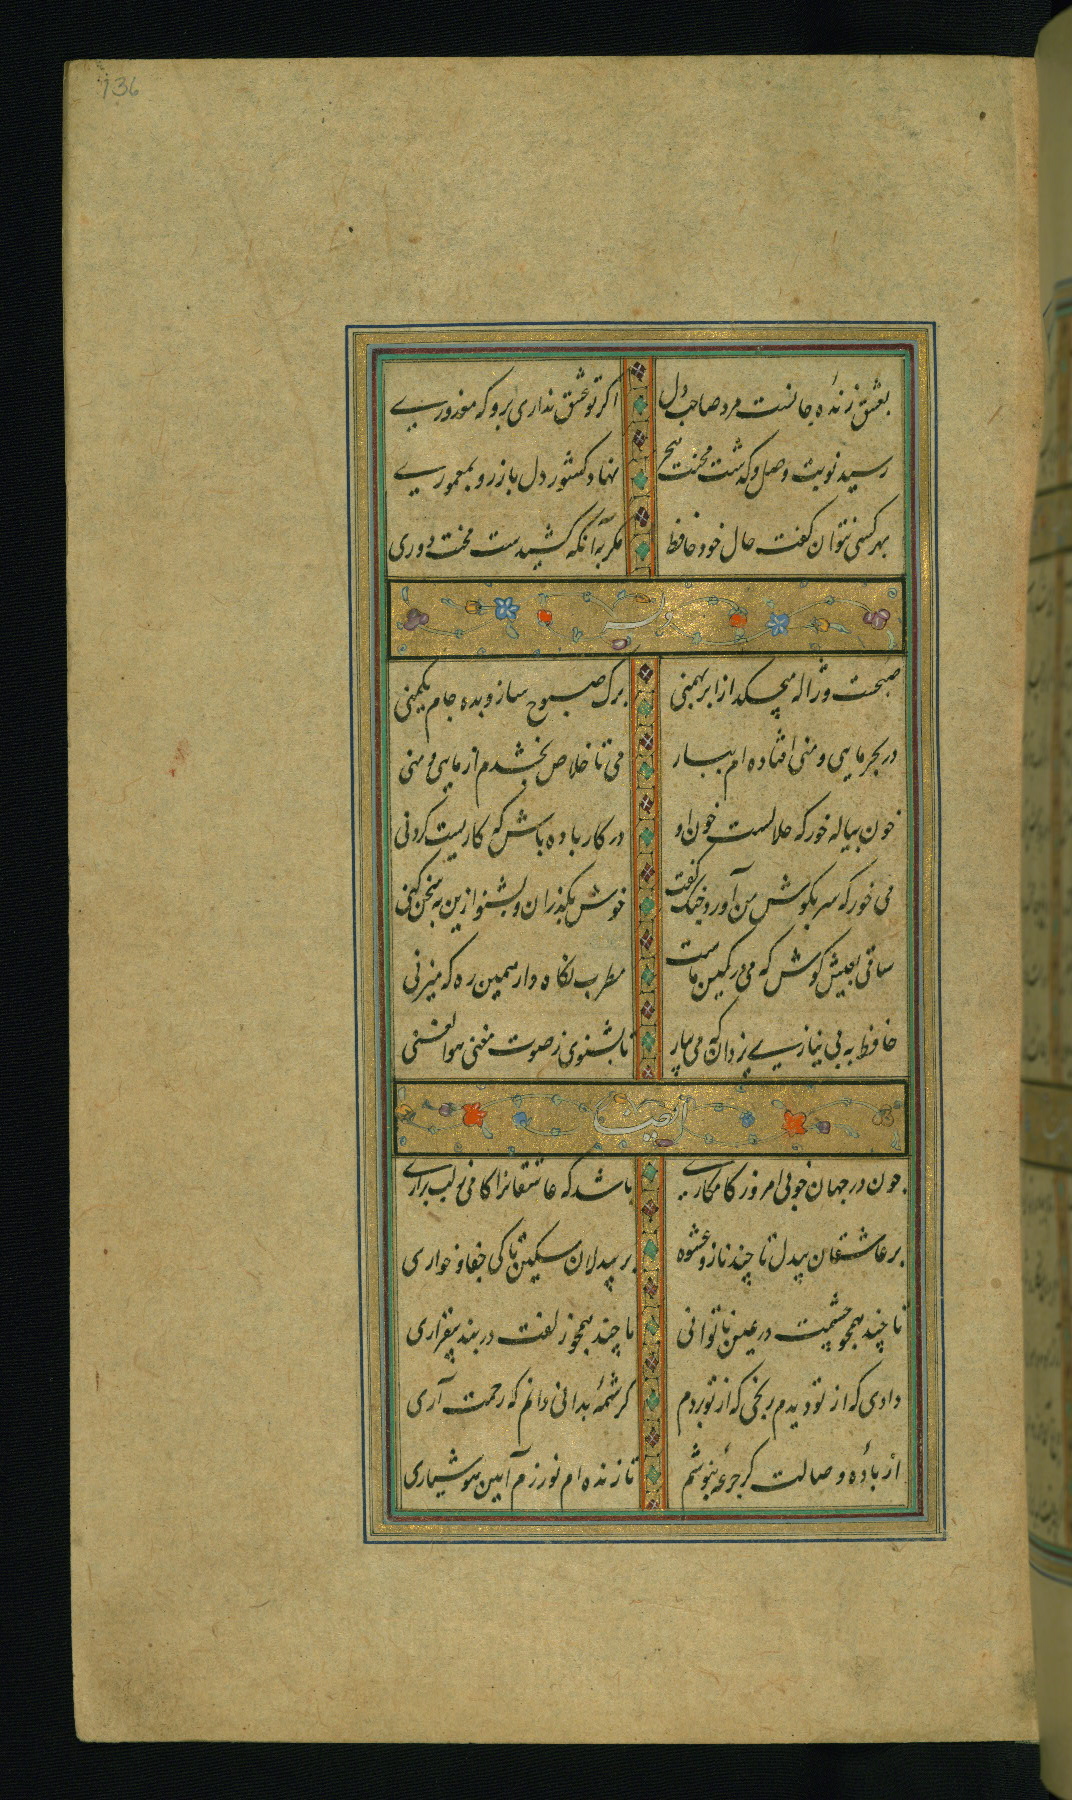 136
بعشق زندهٔ جانست مرد صاحب دل اکر تو عشق نداری برو که معذوری
رسید نوبت وصل و کذشت محنت هجر نهاد کشور دل باز رو بمعموری
بهر کسی نتوان کفت حال خود حافظ مکر به آنکه کشیدست محنت دوری
وله
صبحست و ژاله میچکد از ابر بهمنی برک صبوح ساز و بده جام یکمنی
در بحر مایی و منی افتاده ام بیار می تا خلاص بخشدم از مایی و منی
خون پیاله خور که حلالست خون او در کار باده باش که کاریست کردنی
می خور که سر بکوش من آورد و چنک کفت خوش بکذران و بشنو ازین به سخن کنی
ساقی بعیش کوش که می در کمین ماست مطرب نکاه دار همین ره که میزنی
حافظ به بی نیازی یزدان که می بیار تا بشنوی ز صوت مغنی هو الغنی
چون در جهان خوبی امروز کامکاری باشد که عاشقانرا کامی ز لب براری
بر عاشقان بیدل تا چند ناز و عشوه بر بیدلان مسکین تا کی جفا و خواری
تا چند همچو چشمت در عین ناتوانی تا چند همچو زلفت در بند بیقراری
دردی که از تو دیدم رنجی که از تو بردم کر شمهٔ بدانی دانم که رحمت آری
از بادهٔ وصالت کر جرعهٔ بنوشم تا زنده ام نورزم آیین هوشیاری